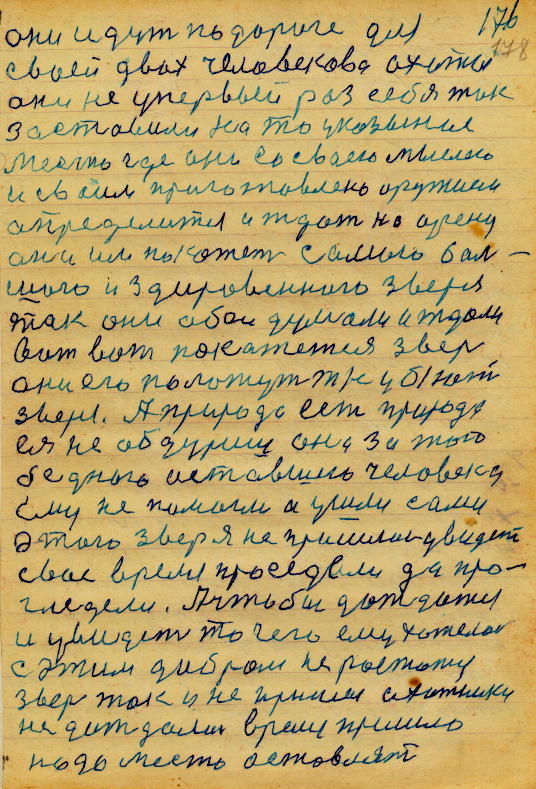 176
178
они идут по дороге для
своей двох человекова охоты
они не упервый раз себя так
заставили на то указыния
место где они со своего мыслею
и своим приготовлено оружием
определится и ждат на арену
они им покожет самого бал-
шого и здировенного зверя
так они обои думали и ждали
вот вот покажется звер
они его положут т.к убют
зверя. А природа ест природа
ея не обдуриш она за того
бедного оставшиго человека
ему не помогли а ушли сами
этого зверя не пришлос увидет
свое время проседели да про-
гледели. А чтобы дождатся
и увидет то чего ему хотелос
с этим добром не
звер так и не пришел охотники
не дождалис время пришло
надо место оставлят